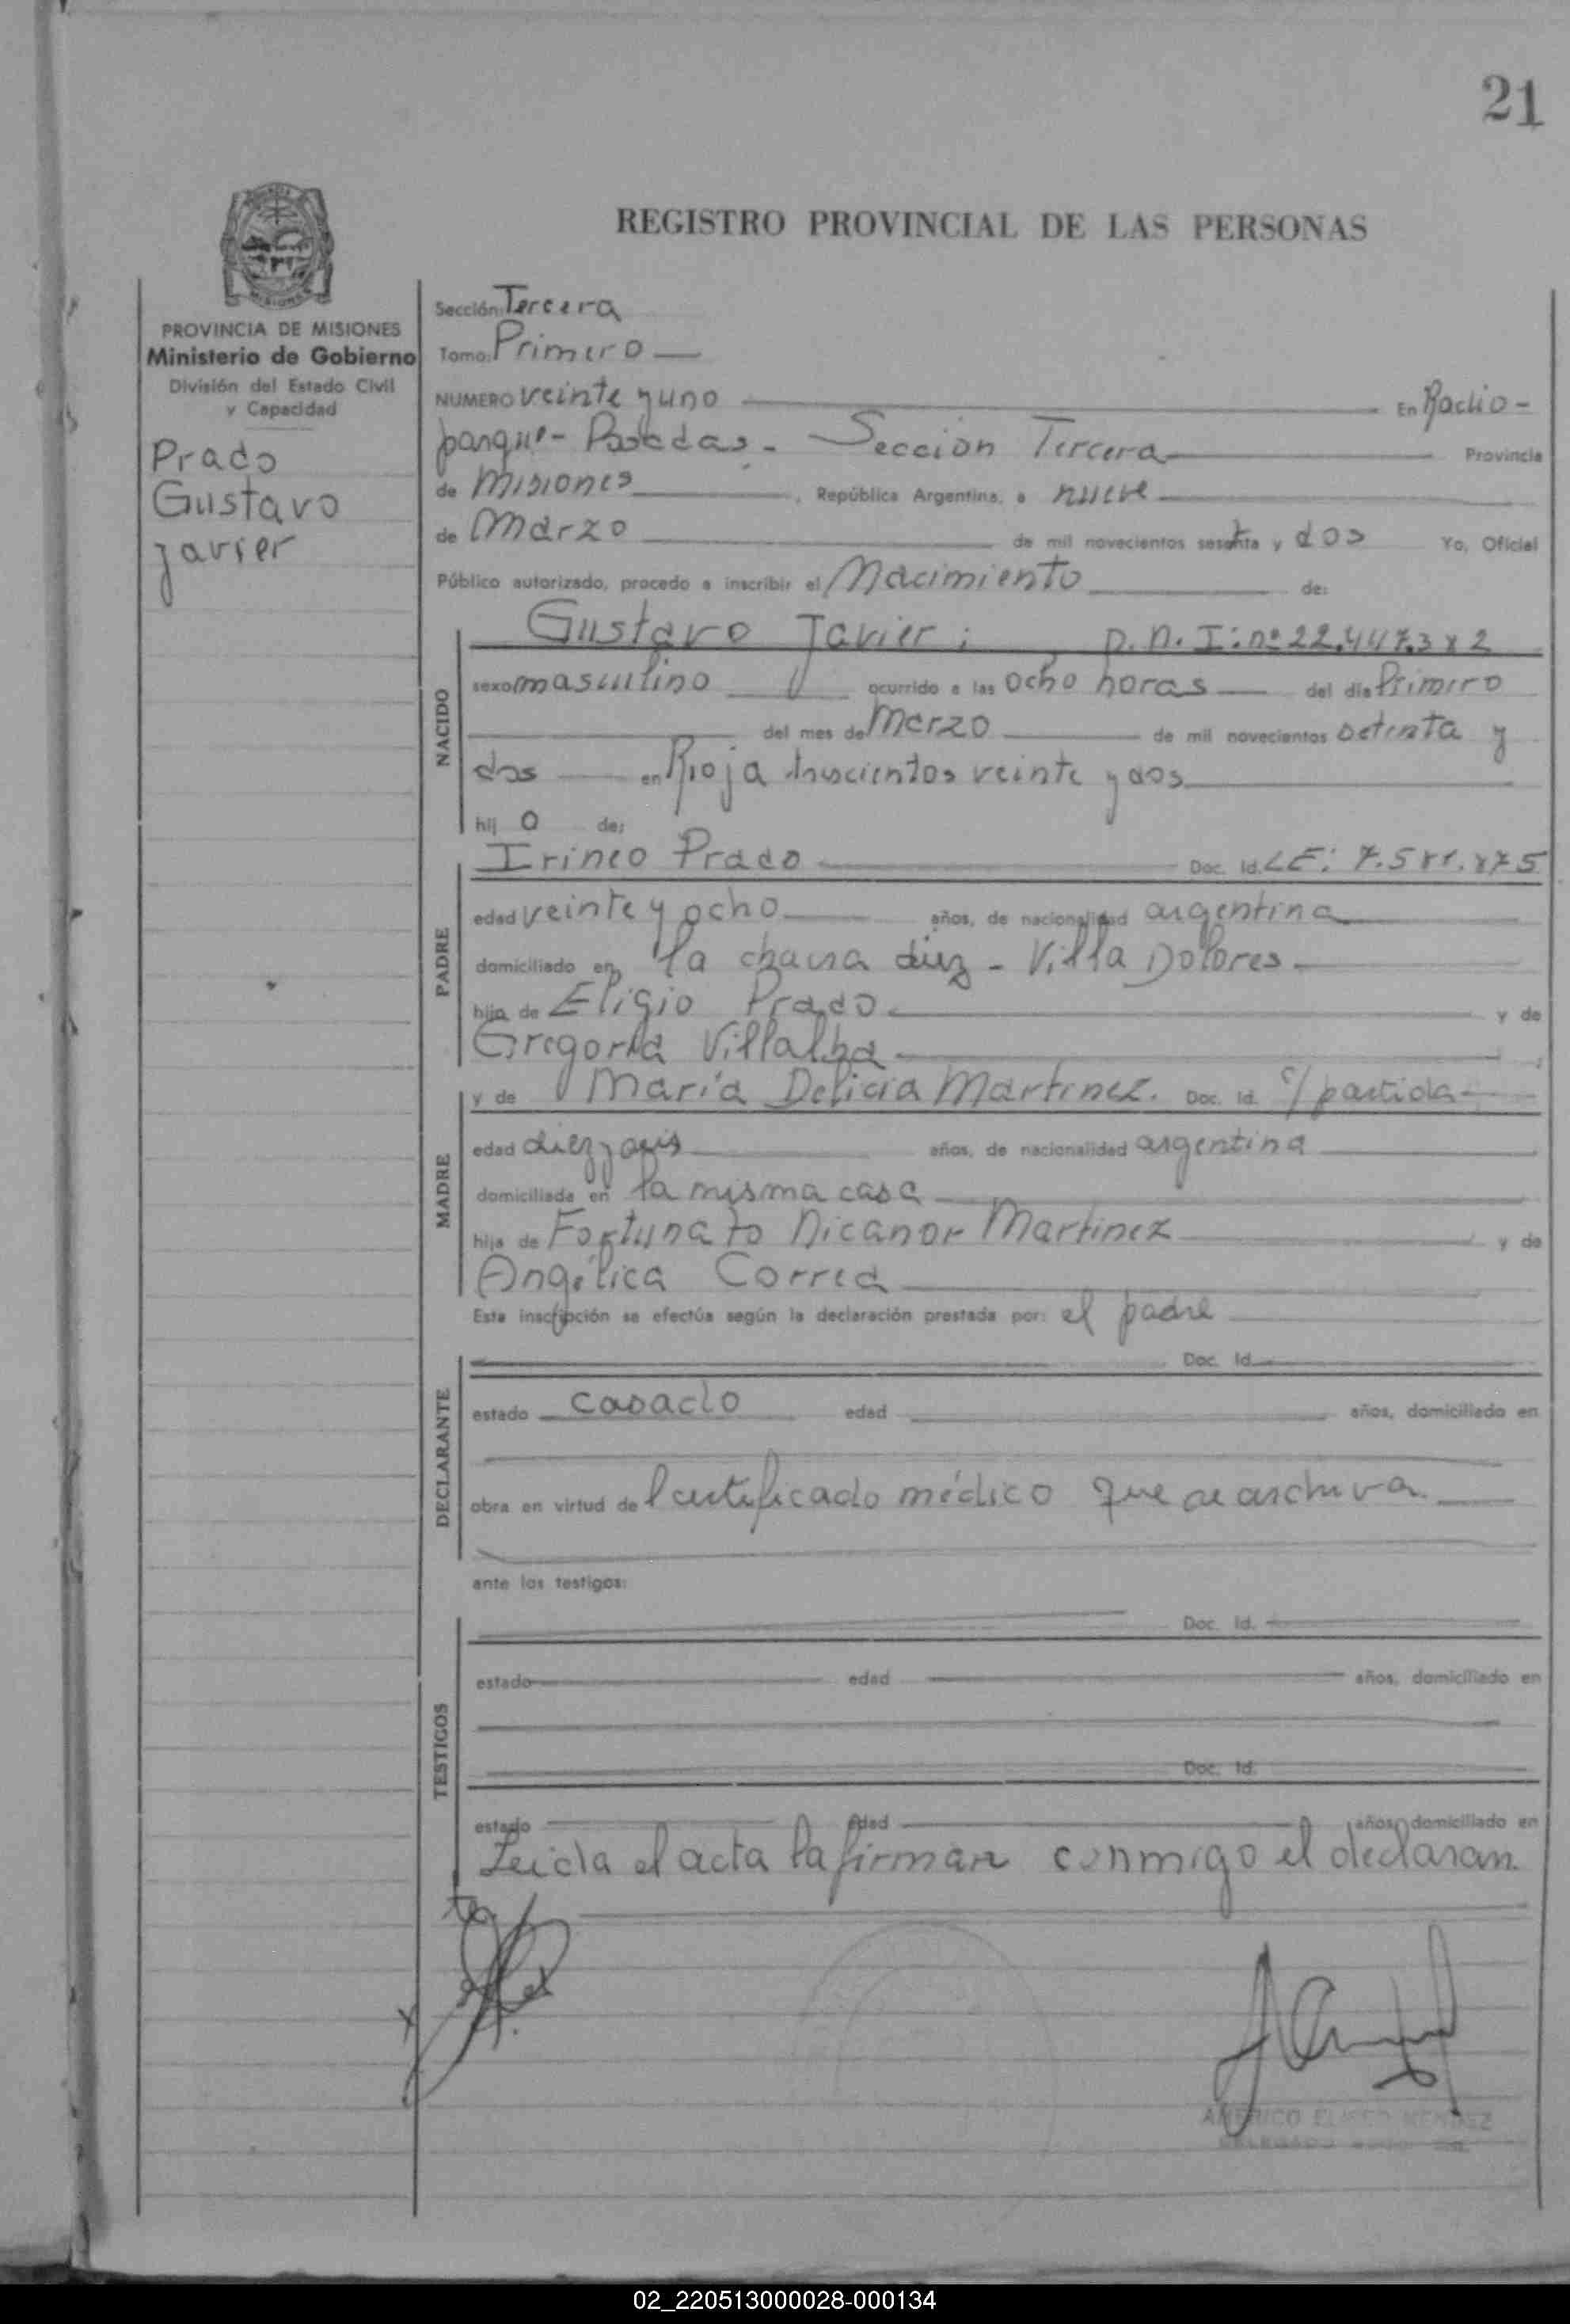 21
REGISTRO PROVINCIAL DE LAS PERSONAS
PROVINCIA DE MISIONES
Ministerio de Gobierno
División del Estado Civil
y Capacidad
Prado
Gustavo
Javier
Sección: Tercera
Tomo: Primero
NUMERO veinte y uno En Radio-
parque- Posadas- Sección Tercera Provincia
de Misiones, República Argentina, a nueve
de Marzo de mil novecientos setenta y dos Yo, Oficial
Público autorizado, procedo a inscribir el Nacimiento de:
Gustavo Javier; D.N.I: nº
NACIDO
sexo masculino ocurrido a las ocho horas del día Primero
del mes de Marzo de mil novecientos setenta y
dos en Rioja trescientos veinte y dos
hij o de:
PADRE
Irineo Prado Doc. Id. LE:
edad veinte y ocho años, de nacionalidad argentina
domiciliado en la chacra diez - Villa Dolores
hijo de Eligio Prado y de
Gregoria Villalba
MADRE
y de María Delicia Martinez. Doc. Id. c/partida
edad diez y seis años, de nacionalidad argentina
domiciliada en la misma casa
hija de Fortunato Nicanor Martinez y de
Angélica Correa
Esta inscripción se efectúa según la declaración prestada por: el padre
DECLARANTE
Doc. Id.
estado casado edad años, domiciliado en
obra en virtud del certificado médico que se archiva.
ante los testigos:
TESTIGOS
Doc. Id.
estado edad años, domiciliado en
Doc. Id.
estado edad años, domiciliado en
Leida el acta la firman conmigo el declaran
te
AMERICO ELISEO MENDEZ
DELEGADO
02_220513000028-000134